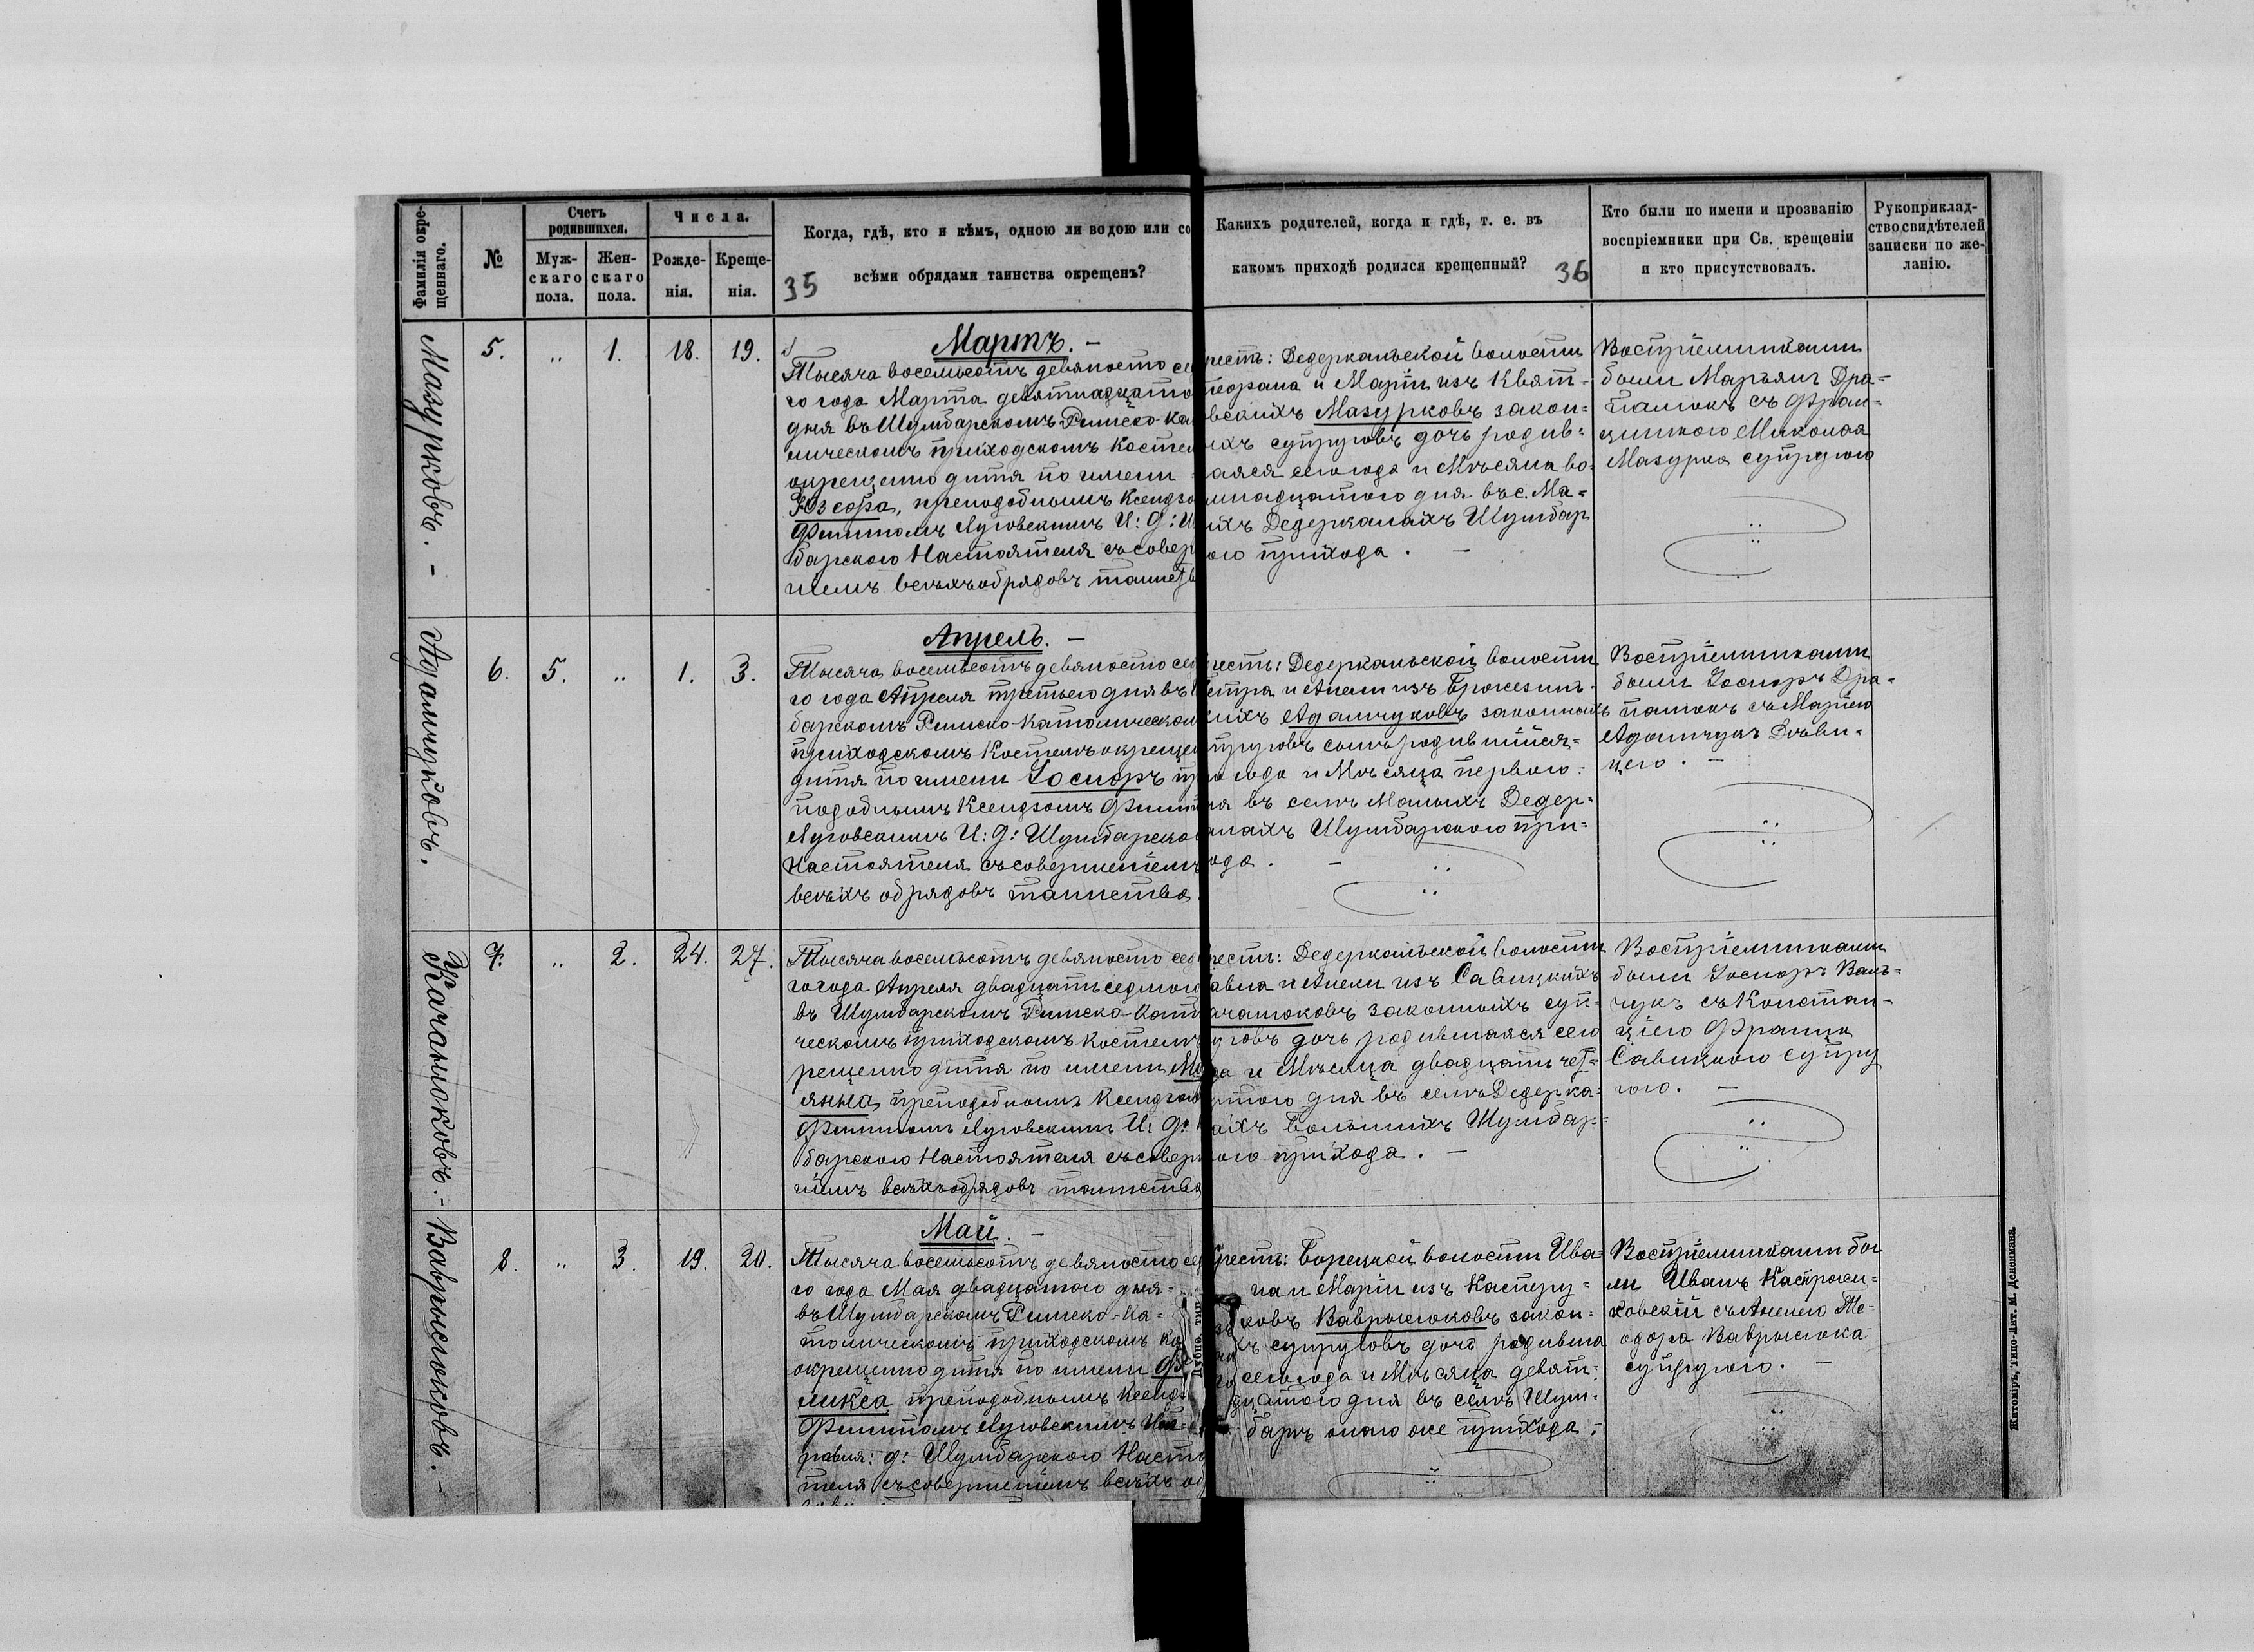 Фамилія окре-
щеннаго.
№
Счетъ
родившихся.
Муж-
скаго
пола.
Жен-
скаго
пола.
Числа.
Рожде-
нія.
Креще-
нія.
Когда, гдѣ, кто и кѣмъ, одною ли водою или со
всѣми обрядами таинства окрещенъ?
35
Каких​ъ родителей, когда и гдѣ, т. е. въ
какомъ приходѣ родился крещенный?
36
Кто были по имени и прозванію
воспріемники при Св. крещеніи
и кто присутствовалъ.
Рукоприклад-
ство свидѣтелей
записки по же-
ланію.
Мазурковъ. -
5.
"
1.
18.
19.
Мартъ. -
Тысяча восемьсотъ девяносто се
го года Марта девятнадцато
дня въ Шумбарскомъ Римско-ка
лическомъ приходскомъ Костел
окрещено дитя по имени
Юзефа, преподобнымъ Ксендзо
Филипомъ Луговскимъ И: д: Ш
барского Настоятеля съ совер
ніемъ всѣхъ обрядовъ таинств
рестъ: Дедеркальской волости
тефана и Маріи изъ Квят-
вскихъ Мазурковъ закон-
ихъ супруговъ дочь родив-
аяся сего года и Мѣсяца во-
мнадцатого дня въ с. Ма-
ихъ Дедеркалахъ Шумбар
ого прихода. -
Воспріемниками
были Марьянъ Дра-
панюкъ съ Фран-
цишкою Миколая
Мазурка супругою
Адамчуковъ.
6.
5.
"
1.
3.
Апрель. -
Тысяча восемьсотъ девяносто сед
го года Апреля третьего дня въ
барскомъ Римско-Католическом
приходскомъ Костелѣ окрещен
дитя по имени Іосифъ пр
подобнымъ Ксендзомъ Филип
Луговскимъ И: д: Шумбарско
Настоятеля съ совершеніемъ
всѣхъ обрядовъ таинства
рестъ: Дедеркальской волости
етра и Анели изъ Бржезин-
кихъ Адамчуковъ законныхъ
пруговъ сынъ родившійся-
го года и Мѣсяца первого-
ня въ селѣ Малыхъ Дедер-
алахъ Шумбарского при-
ода. -
Воспріемниками
были Іосифъ Дра-
панюкъ съ Маріею
Адамчукъ Дѣви-
цею. -
Качанюковъ. -
7.
"
2.
24.
27.
Тысяча восемьсотъ девяносто сед
го года Апреля двадцать седмого
въ Шумбарскомъ Римско-като
ческомъ приходскомъ Костелѣ
рещено дитя по имени Ма
янна, преподобнымъ Ксендзо
Филипомъ Луговскимъ И: д:
барского Настоятеля съ совер
ніемъ всѣхъ обрядовъ таинства
рестъ: Дедеркальской волости
авла и Анели изъ Савицкихъ
ачанюковъ законныхъ суп-
уговъ дочь родившаяся сего
да и Мѣсяца двадцать чет-
ртого дня въ селѣ Дедерка-
ахъ Большихъ Шумбар-
ого прихода. -
Воспріемниками
были Іосифъ Валь-
чукъ съ Констан-
ціею Франца
Савицкого супру
гою. -
Ваврынюковъ. -
8.
"
3.
19.
20.
Май. -
Тысяча восемьсотъ девяносто сед
го года Мая двадцатого дня-
въ Шумбарскомъ Римско-Ка-
толическомъ приходскомъ Ко
окрещено дитя по имени Фе
ликса преподобнымъ Ксендз
Филипомъ Луговскимъ
равля: д: Шумбарского Насто
теля съ совершеніемъ всѣхъ об
Дубно, тип.
рестъ: Борецкой волости Ива-
на и Маріи изъ Каспру-
ковъ Ваврынюковъ закон-
хъ супруговъ дочь родивша
сего года и Мѣсяца девят-
дцатого дня въ селѣ Шум-
барѣ оного же прихода.
Воспріемниками бы
ли Иванъ Кастржи-
ковскій съ Анелею Те-
одора Ваврынюка
супругою. -
Житоміръ, Типо-Лит. М. Дененмана